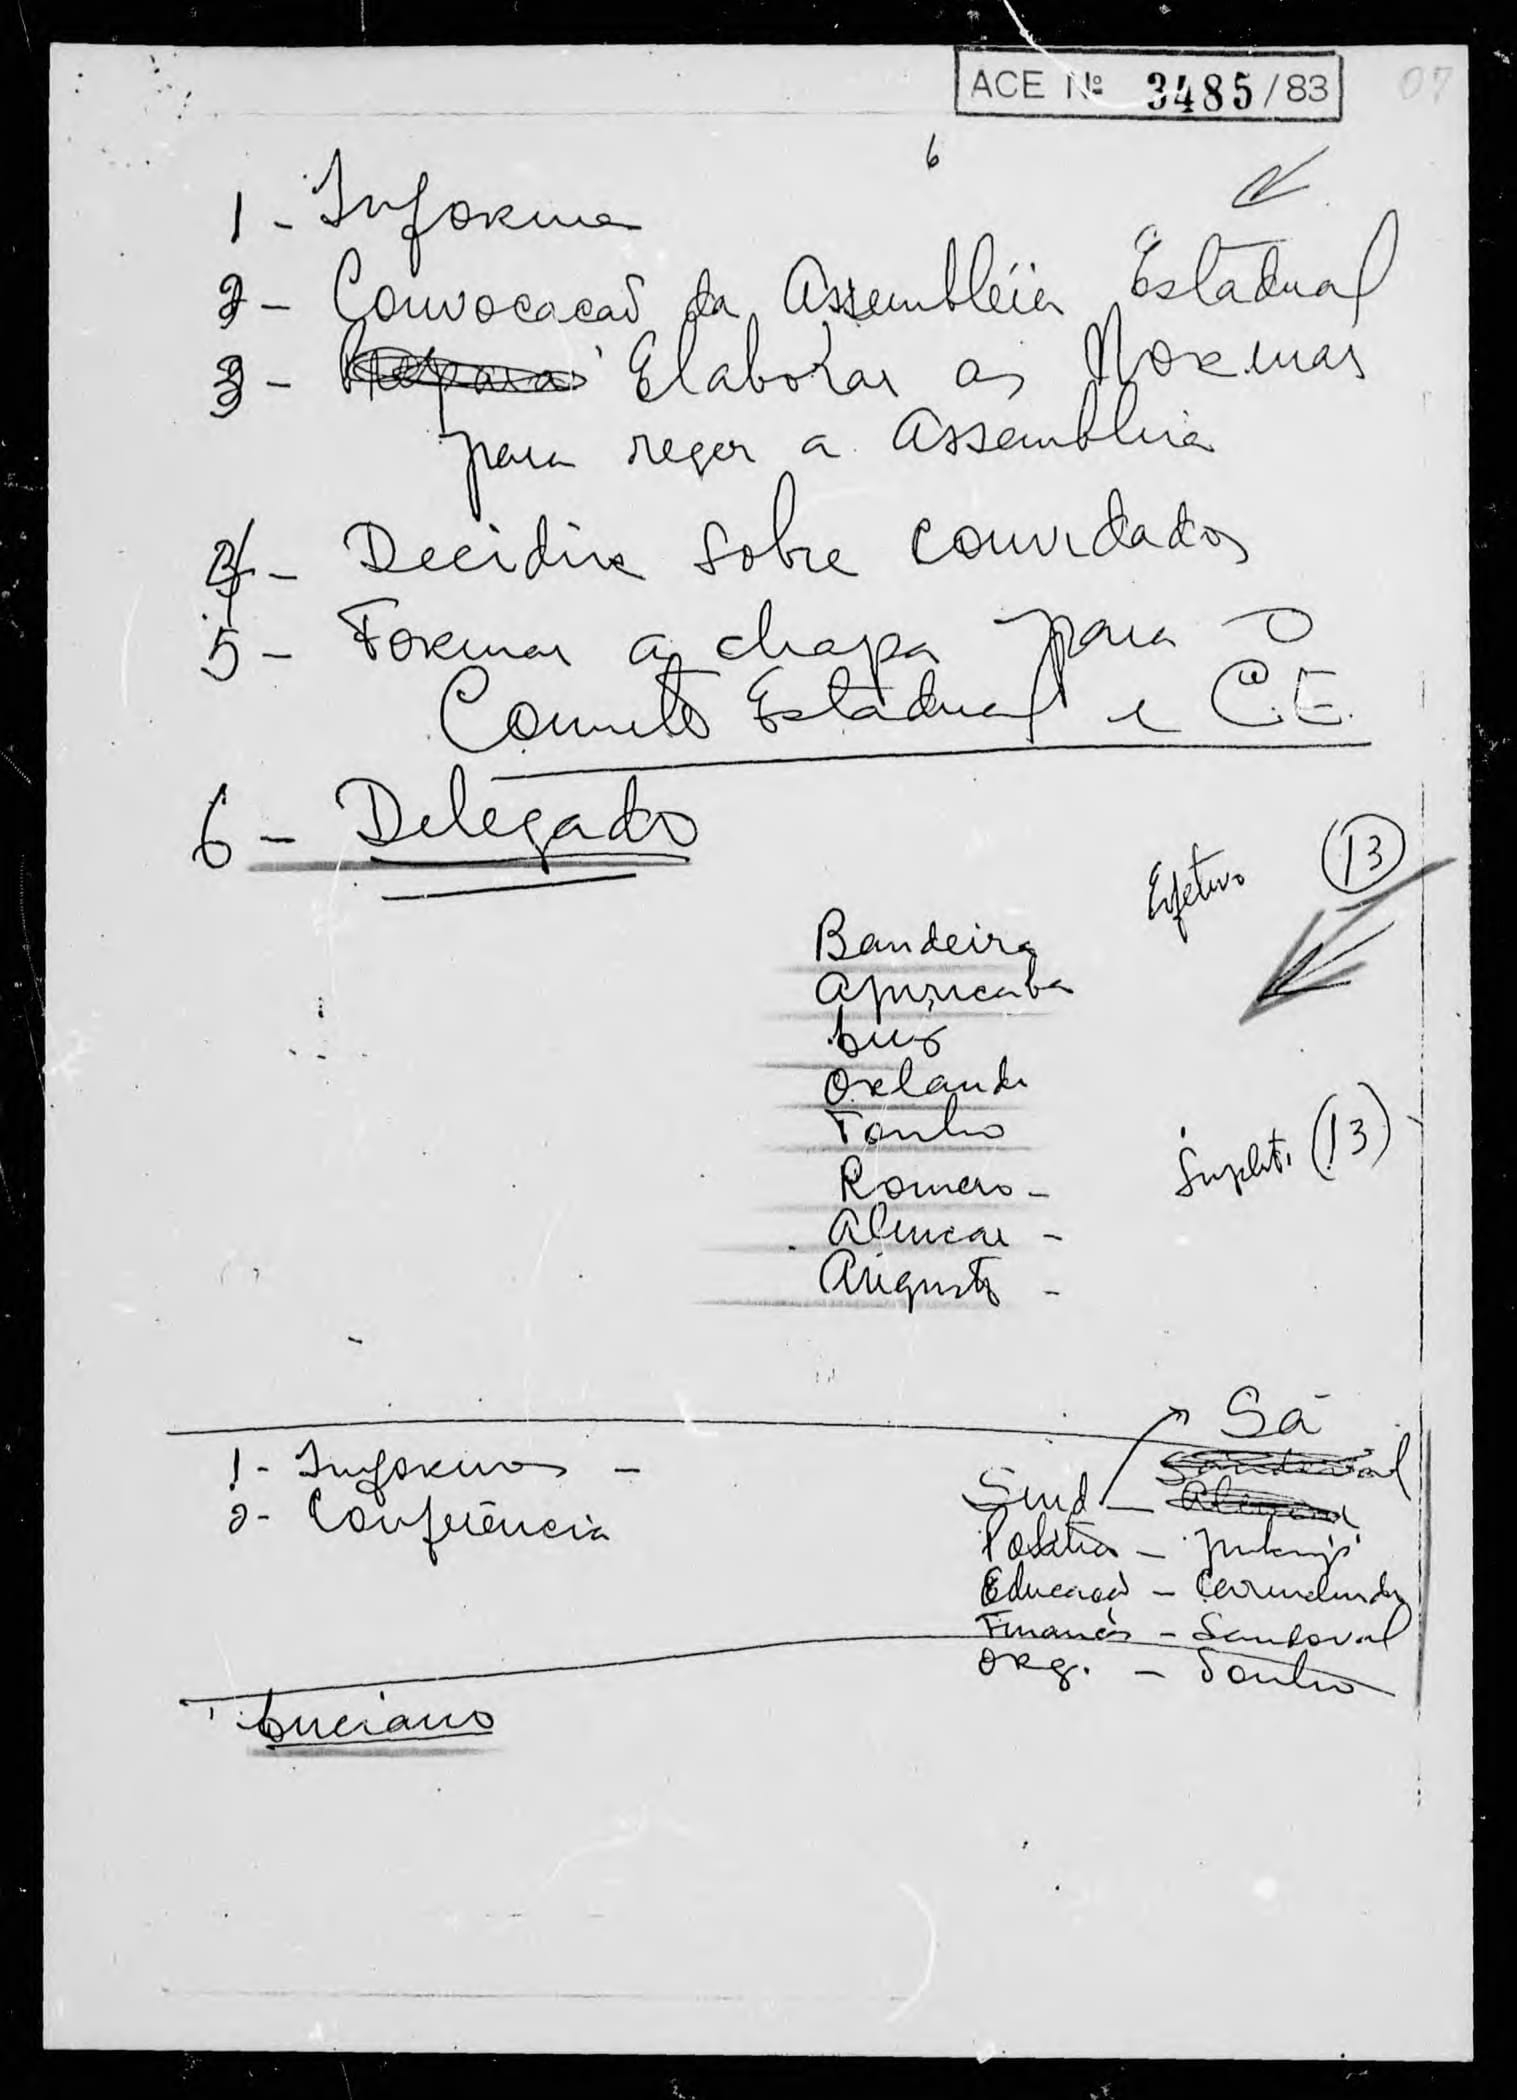 ACE Nº 3485/83
07
6
1 - Informe
2 - Convocação da Assembléia Estadual
3 - Preparar Elaborar as Normas
para reger a Assembleia
4 - Decidir sobre convidados
5 - Formar a chapa para o
Comitê Estadual e C.E.
6 - Delegado
Efetivo 13
Bandeira
Ajuricaba
Luiz
Orlando
Tonho
Suplete (13)
Romero -
Alencar -
Augusto -
Sá
1 - Informes -
Sandoval
2 - Conferência
Sind -
Politica -
Educação -
Finanças - Sandoval
Org. - Tonho
Luciano